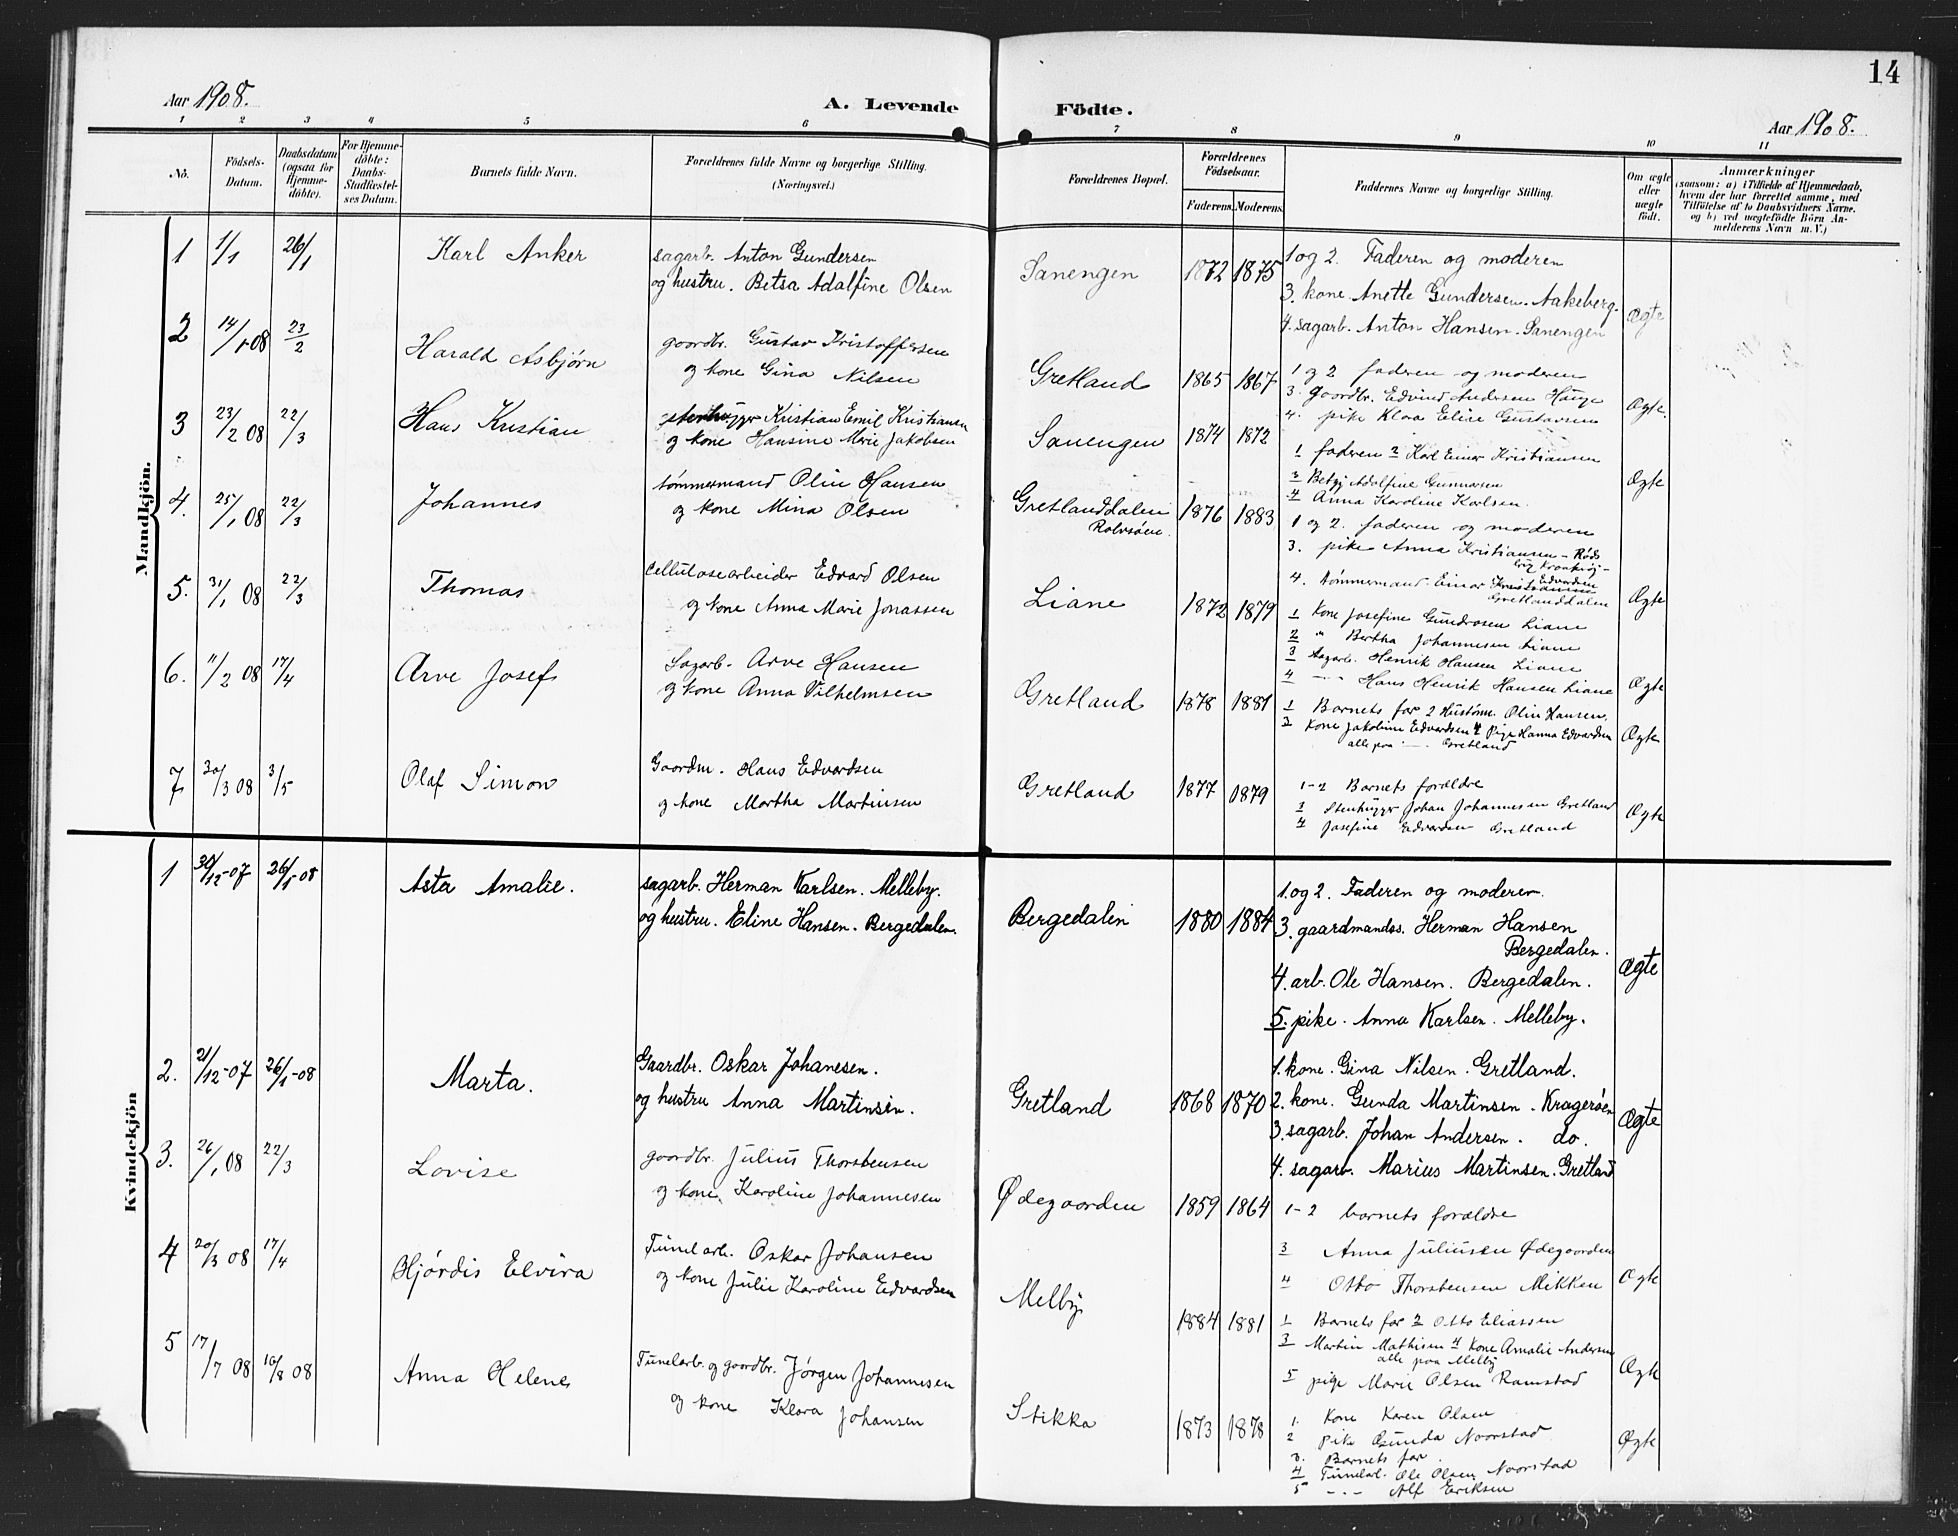 14
Aar 1908.
A. Levende
Födte.
Aar 1908.
1 2 3 4 5 6 7 8 9 10 11
No.
Födsels-
Datum.
Daabsdatum
(ogsaa for
Hjemme-
döbte).
For Hjemme-
döbte:
Daabs-
Stadfæstel-
ses Datum.
Barnets fulde Navn.
Forældrenes fulde Navne og borgerlige Stilling.
(Næringsvei.)
Forældrenes Bopæl.
Forældrenes
Födselsaar.
Faderens. Moderens.
Faddernes Navne og borgerlige Stilling.
Om ægte
eller
uægte
födt.
Anmærkninger
(saasom: a) i Tilfælde af Hjemmedaab,
hvem der har forrettet samme, med
Tilföielse af to Daabsvidners Navne.
og b) ved uægtefödte Börn An-
melderens Navn m. V.)
Mandkjön.
1 1/1 26/1 Karl Anker
sagarb. Anton Gundersen
og hustru. Betsa Adalfine Olsen
Sanengen 1872 1875
1 og 2. Faderen og moderen
3. kone Anette Gundersen. Aakeberg.
4. sagarb. Anton Hansen. Sanengen
Ægte
2 14/1 08 23/2 Harald Asbjørn
gaardbr. Gustav Kristoffersen
og kone Gina Nilsen
Gretland 1865 1867
1 og 2 faderen og moderen
3. gaardbr. Edvind Andersen Hauge
4. pike Klara Eline Gustavsen
Ægte.
3 23/2 08 22/3 Hans Kristian
stenhugger Kristian Emil Kristiansen
og kone Hansine Marie Jakobsen
Sanengen 1874 1872
1 faderen 2 Karl Einar Kristiansen
3 Betzy Adolfine Gunnarsen
4 Anna Karoline Karlsen.
Ægte
4. 25/1 08 22/3 Johannes
tømmermand Olin Hansen
og kone Mina Olsen
Gretlanddalen
Rolvsøen. 1876 1883
1 og 2. faderen og moderen
3. pike Anna Kristiansen - Røds

4. tømmermand Einar Edvardsen
Gretlanddalen
Ægte
5. 31/1 08 22/3 Thomas
Cellulosearbeider Edvard Olsen
og kone Anna Marie Jonassen
Liane 1872 1879
1 Kone Josefine Gundrosen Liane
2 " Bertha Johannesen Liane
3 Sagarb. Henrik Hansen Liane
4 - - - Hans Henrik Hansen Liane
Ægte
6. 11/2 08 17/4 Arve Josef
Sagarb. Arve Hansen
og kone Anna Vilhelmsen
Gretland 1878 1881
1 Barnets far 2 Olin Hansen.
3 Kone Jakobine Edvardsen 4 Pige Hanna Edvardsen
alle paa - - Gretland
Ægte
7 30/3 08 3/5 Olaf Simon
Gaardm. Hans Edvardsen
og kone Martha Martinsen
Gretland 1877 1879
1-2 Barnets forældre
3 Stenhugger Johan Johannesen Gretland
4 Josefine Edvardsen Gretland
Ægte
Kvindekjön
1 30/12-07 26/1-08 Asta Amalie.
sagarb. Herman Karlsen. Melleby.
og hustru. Eline Hansen. Bergedalen.
Bergedalen 1880 1884
1. og 2. Faderen og moderen.
3. gaardmands. Herman Hansen
Bergedalen.
4. arb. Ole Hansen. Bergedalen.
5. pike. Anna Karlsen. Melleby.
Ægte
2. 21/12-07 26/1-08 Marta.
Gaardbr. Oskar Johanesen.
og hustru Anna Martinsen.
Gretland 1868 1870
1. kone. Gina Nilsen. Gretland.
2. kone. Gunda Martinsen. Kragerøen
3. sagarb. Johan Andersen. do.
4. sagarb. Marius Martinsen. Gretland
Ægte
3. 26/1 08 22/3 Lovise
gaardbr. Julius Thorstensen
og kone. Karoline Johannesen
Ødegaarden 1859 1864
1-2 barnets forældre
3 Anna Juliusen Ødegaarden
4 Otto Thorstensen Mikken
Ægte
4 20/3 08 17/4 Hjørdis Elvira
Tunelarb. Oskar Johansen
og kone Julie Karoline Edvardsen
Melby 1884 1881
1 Barnets far 2 Otto Eliassen
3 Martin Mathisen 4 Kone Amalie Andersen
alle paa Melby
5 pige Marie Olsen Ramstad
Ægte
5 17/7 08 16/8 08 Anna Helene
Tunelarb. og gaardbr. Jørgen Johannesen
og kone Klara Johansen
Stikka 1873 1878
1. Kone Karen Olsen
2 pike Gunda Noorstad
3. Barnets far.
4 Tunelarb. Ole Olsen Noorstad
5 - - - Alf Eriksen
Ægte